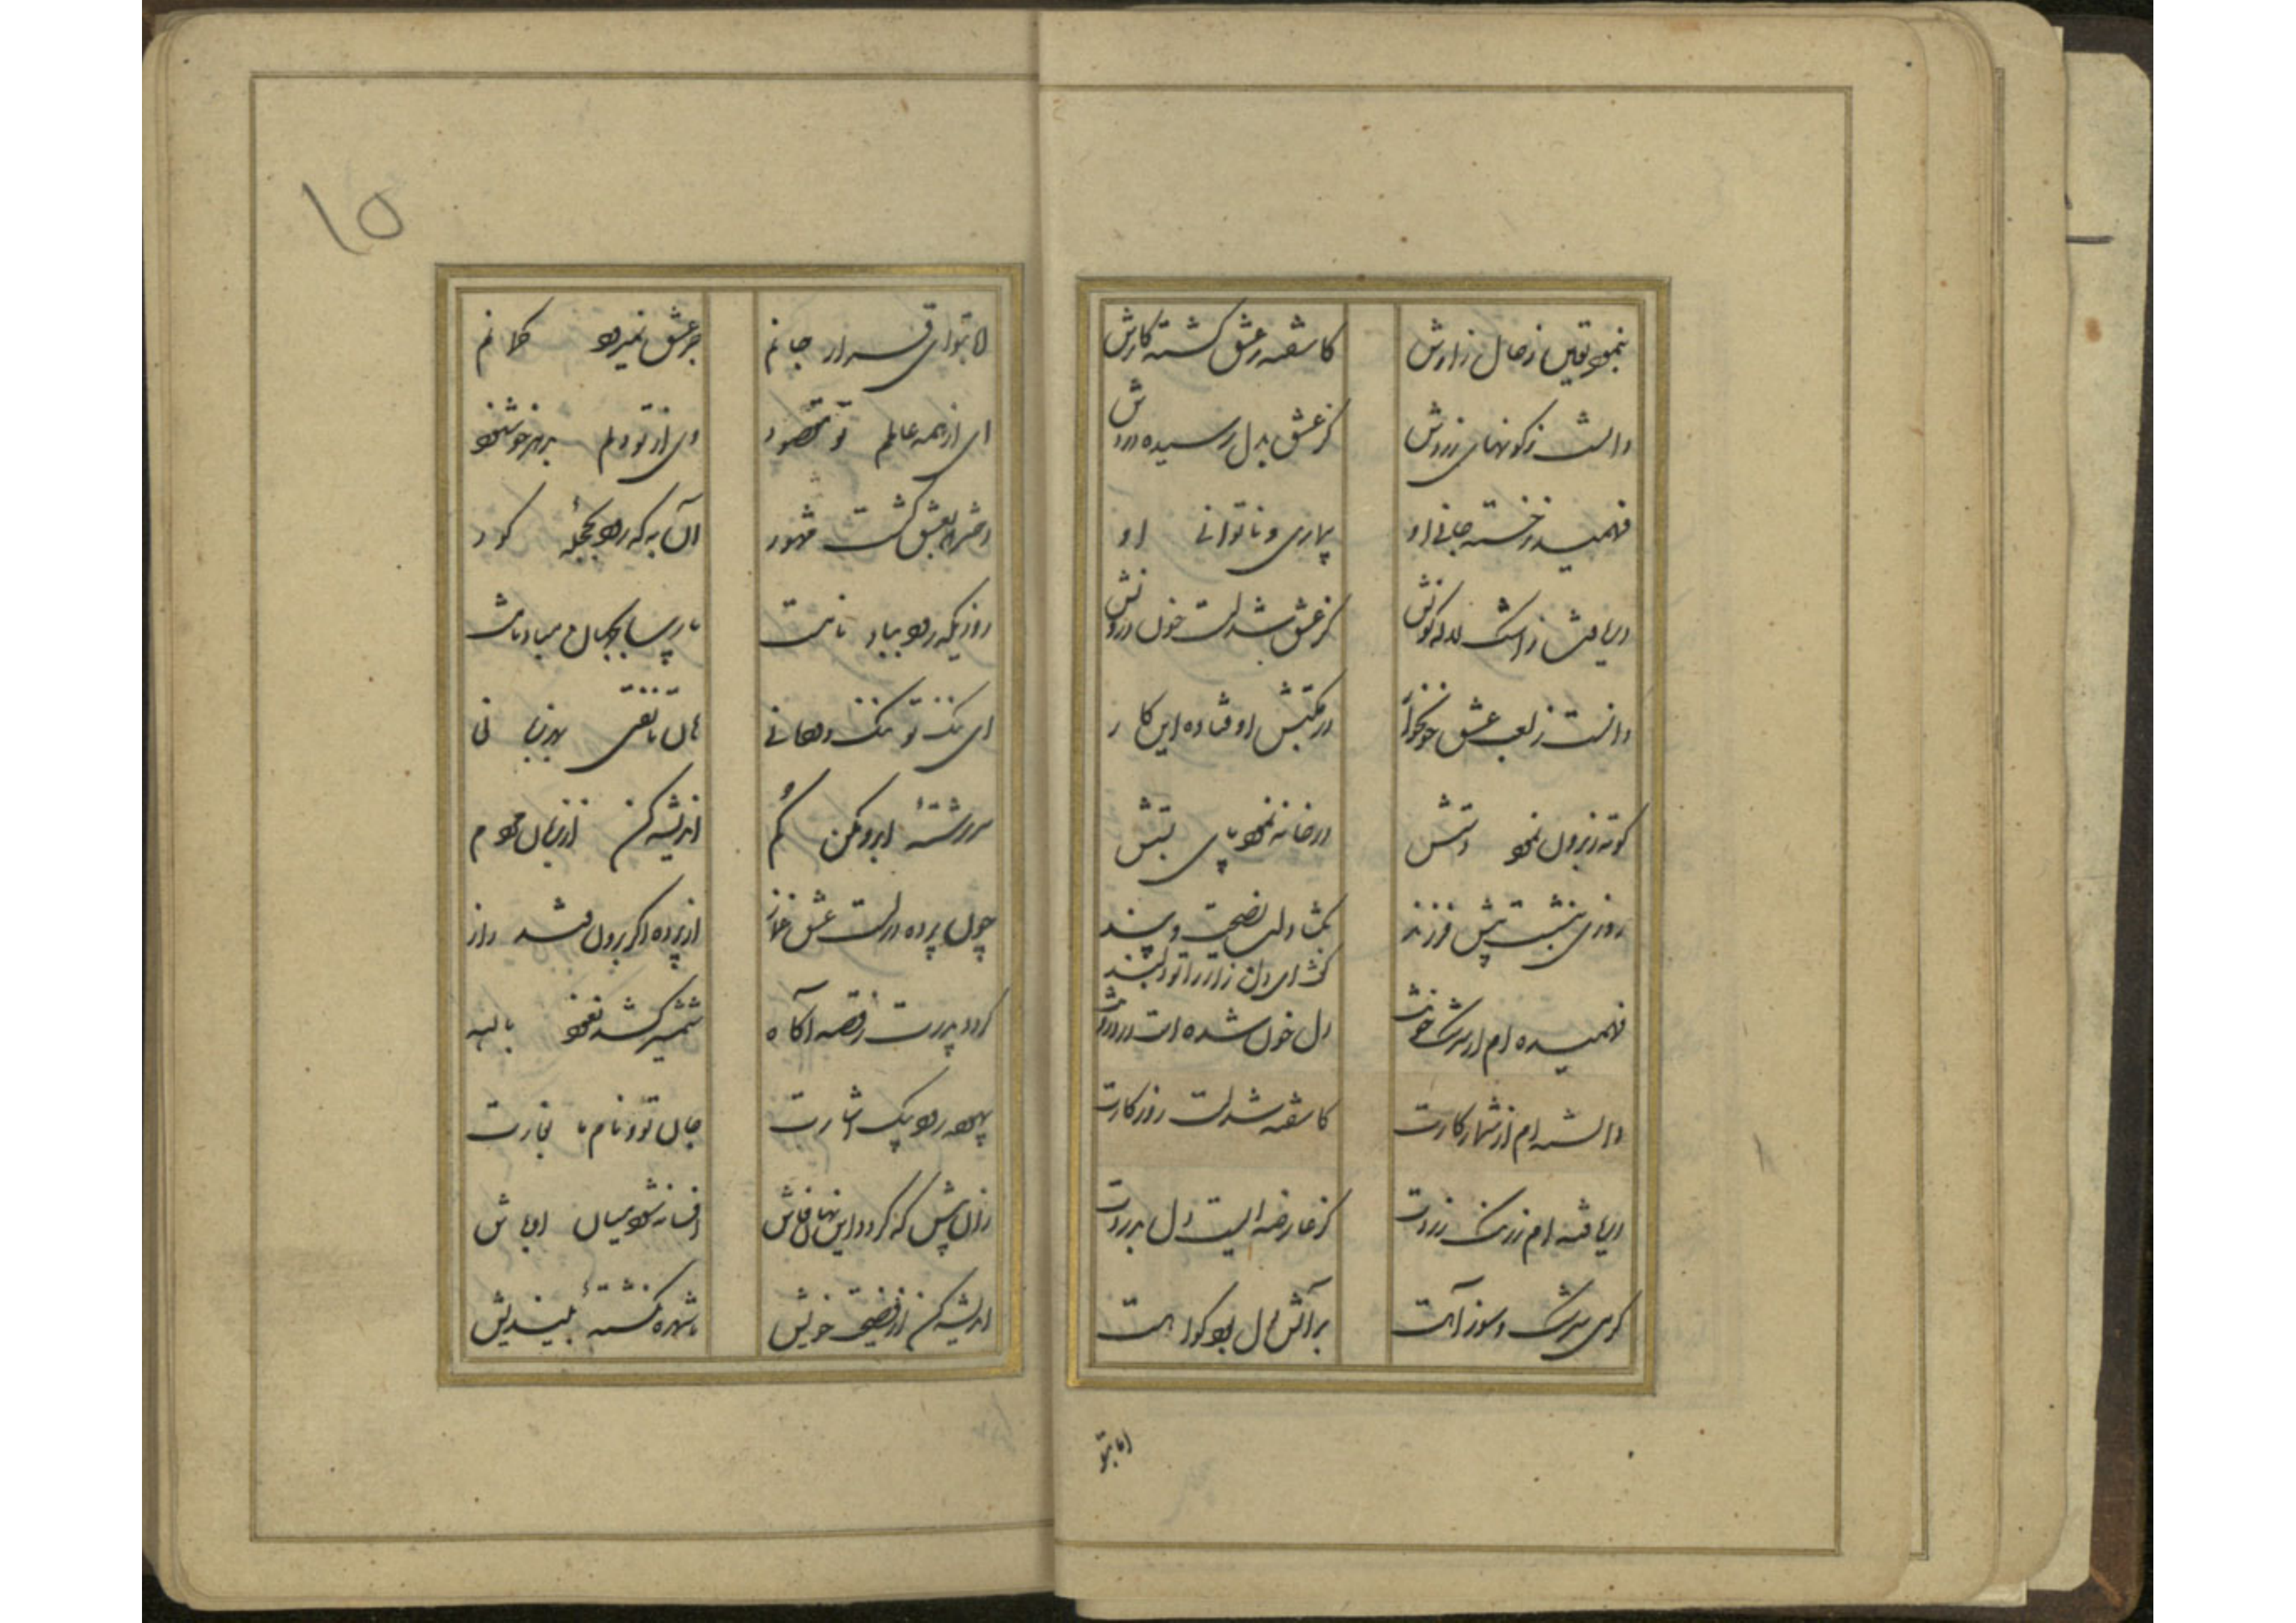 بنمود یقین ز حال زارش
کاشفته ز عشق گشته کارش
دانست ز گونهای زردش
کز عشق بدل رسیده دردش
فهمید ز خسته جانی او
بیماری و ناتوانی او
دریافت ز اشک لاله گونش
کز عشق شدست خون درونش
دانست ز لعب عشق خونخوار
در مکتبش اوفتاده این کار
کوته ز برون نمود دستش
در خانه نمود پای بستش
روزی بنشست پیش فرزند
بگشاد لب نصیحت و پند
کش ای دل زار را تو دلبند
فهمیده ام از سرشک خونت
دل خون شده است در درونت
دانسته ام از شمار کارت
کاشفته شدست روزگارت
دریافته ام ز رنگ زردت
کز عارضه ایست دل بدردت
گرمی سرشک و سوز آهت
بر آتش دل بود گواهت
اما بتو
اما بتو ای قرار جانم
جز عشق نمیبرد گمانم
ای از همه عالم تو مقصود
وی از تو دلم بهر چه خوشنود
دختر که بعشق گشت مشهور
آن به که رود بحجله گور
روزیکه رود بباد نامت
ای تنگ تو تنگ دهانی
هان تا نفتی بهر زبانی
سررشته آبرو مکن گم
اندیشه کن از زبان مردم
چون پرده درست عشق غماز
از پرده اگر برون فتد راز
گردد پدرت ز قصه آگاه
شمشیر کشد نعوذ بالله
بیهوده رود بیک اشارت
جان تو و نام ما بغارت
زان پیش که گردد این نهان فاش
افسانه شود میان اوباش
اندیشه کن از فضیحت خویش
تا شهره نگشته بیندیش
۱۵